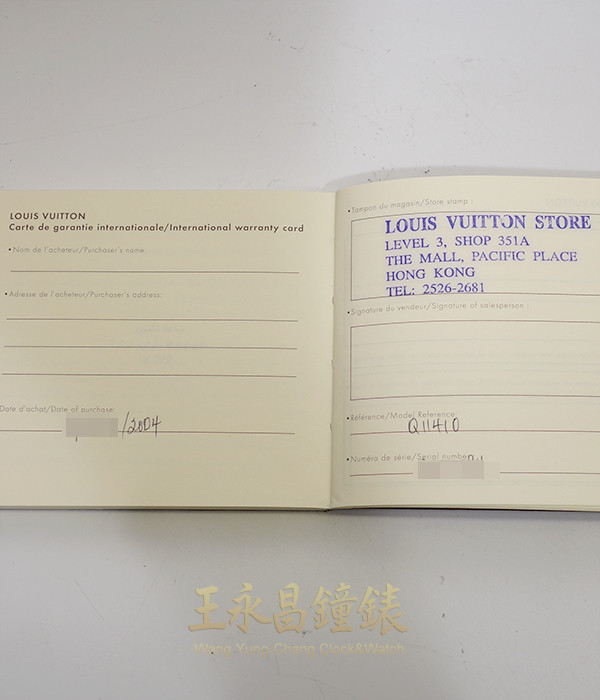 LOUIS VUITTON
Carte de garantie internationale/International warranty card
•Nom de l'acheteur/Purchaser's name:
•Adresse de l'acheteur/Purchaser's address:
Date d'achat/Date of purchase:
/2004
•Tampon du magasin/Store stamp :
LOUIS VUITTON STORE
LEVEL 3, SHOP 351A
THE MALL, PACIFIC PLACE
HONG KONG
TEL: 2526-2681
•Signature du vendeur/Signature of salesperson :
•Référence/Model Reference:
Q11410
•Numéro de série/Serial number
王永昌鐘錶
Wang Yung Chang Clock&Watch